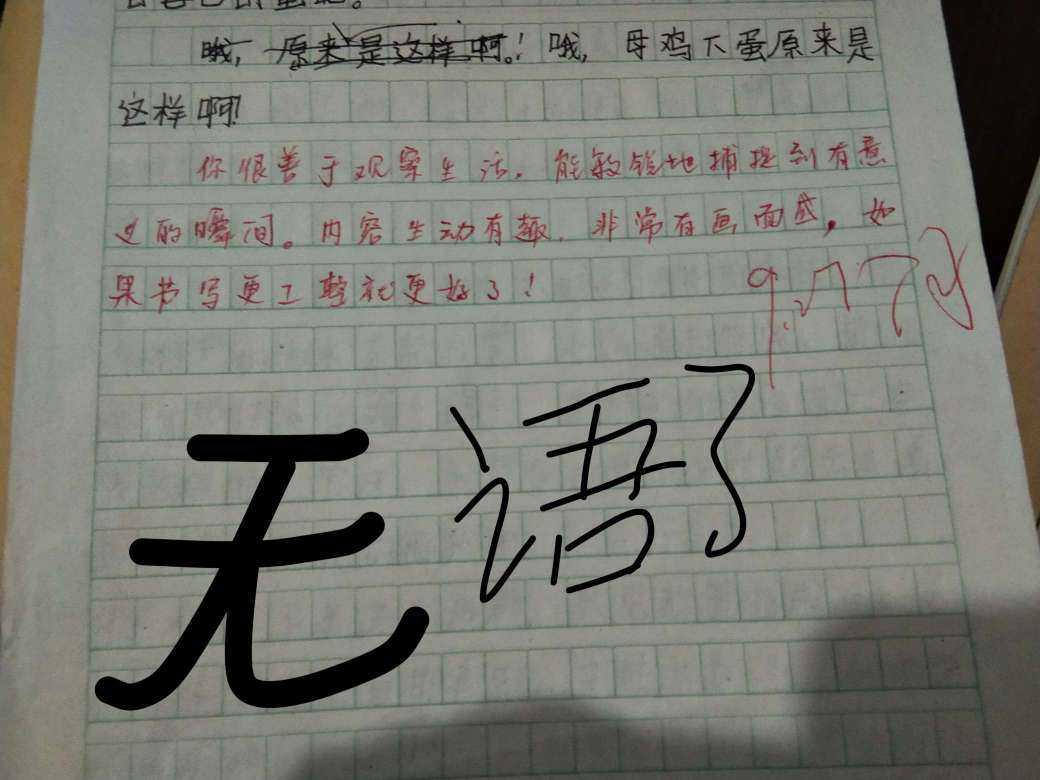 哦，原来是这样啊！哦，母鸡下蛋原来是
这样啊！
你很善于观察生活，能敏锐地捕捉到有意
的瞬间。内容生动有趣，非常有画面感，如
果书写更工整就更好了！
无语了